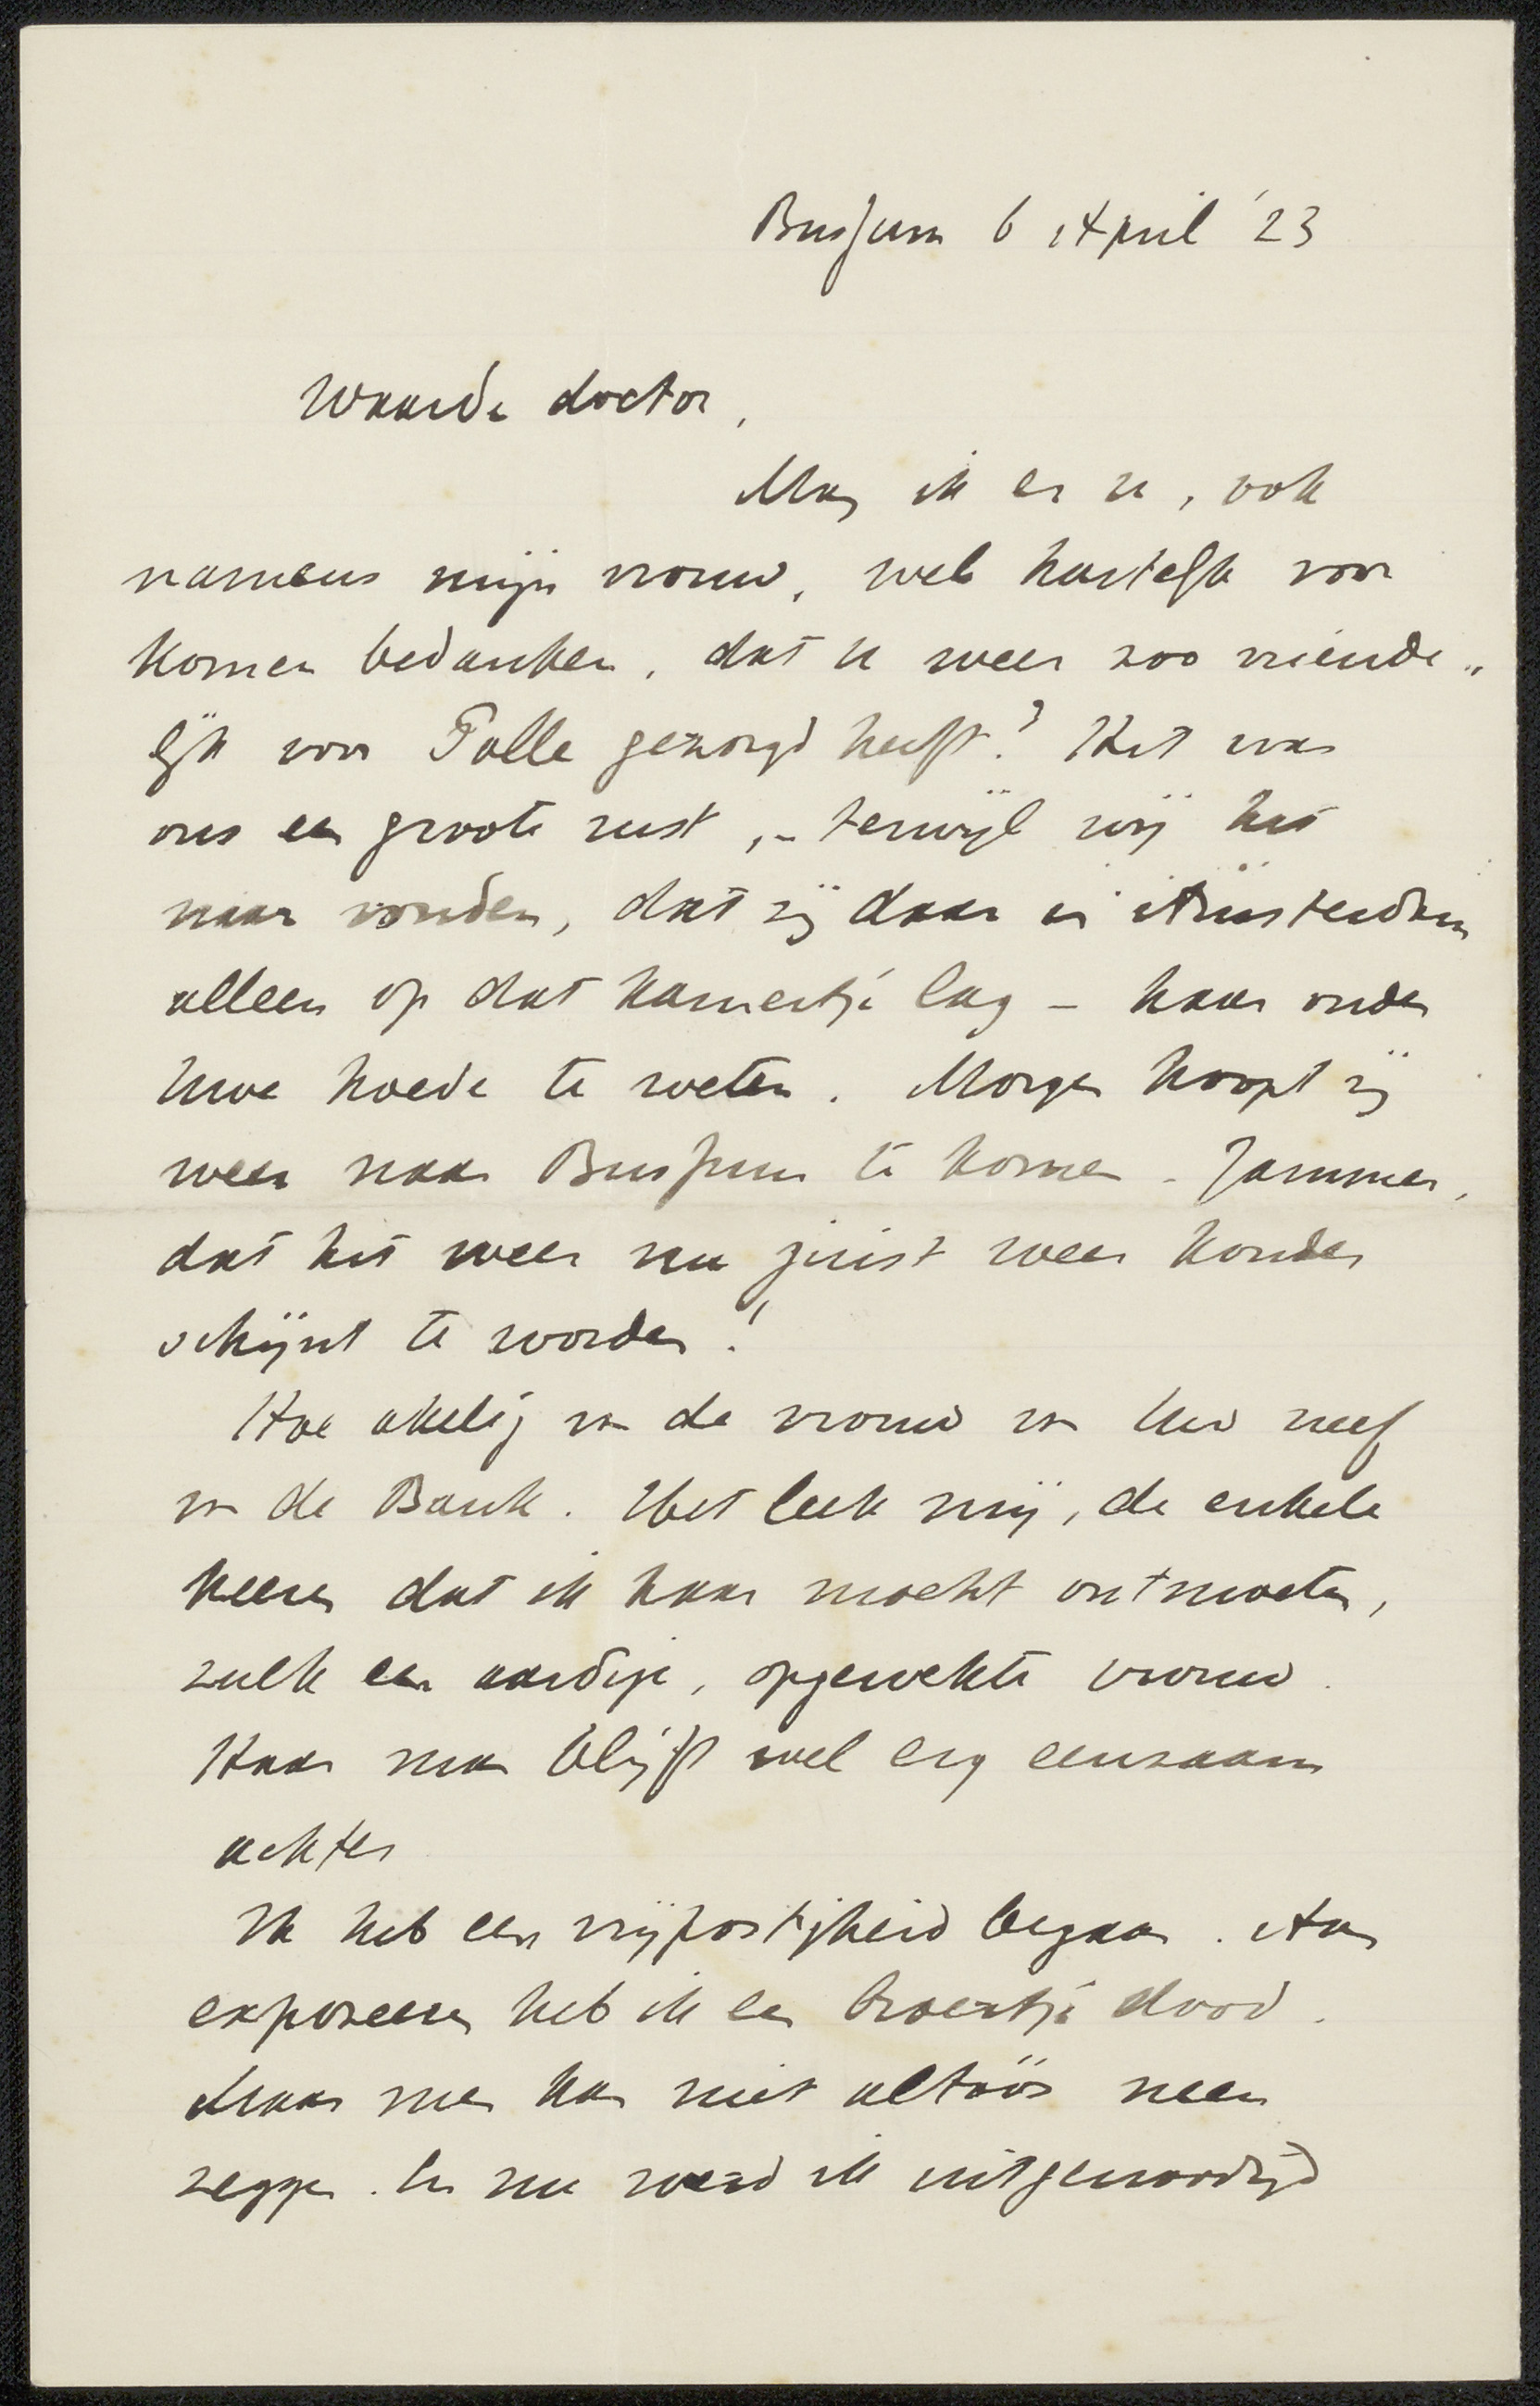 Bussum 6 April '23
Waarde doctor,
Mag ik er u, ook
namens mijn vrouw, wel hartelijk voor
komen bedanken, dat u weer zoo vriende„
lijk voor Palle gezorgd heeft? Het was
ons een groote rust, – terwijl wij het
naar vonden, dat zij daar in Amsterdam
alleen op dat kamertje lag – haar onder
Uwe hoede te weten. Morgen hoopt zij
weer naar Bussum te komen. Jammer,
dat het weer nu juist weer kouder
schijnt te worden!
Hoe akelig van de vrouw van Uw neef
van de Bank. Het leek mij, de enkele
keeren dat ik haar mocht ontmoeten,
zulk een aardige, opgewekte vrouw.
Haar man blijft wel erg eenzaam
achter
Ik heb een vrijpostigheid begaan. Aan
exposeeren heb ik een broertje dood.
Maar men kan niet altoos neen
zeggen. En nu werd ik uitgenoodigd